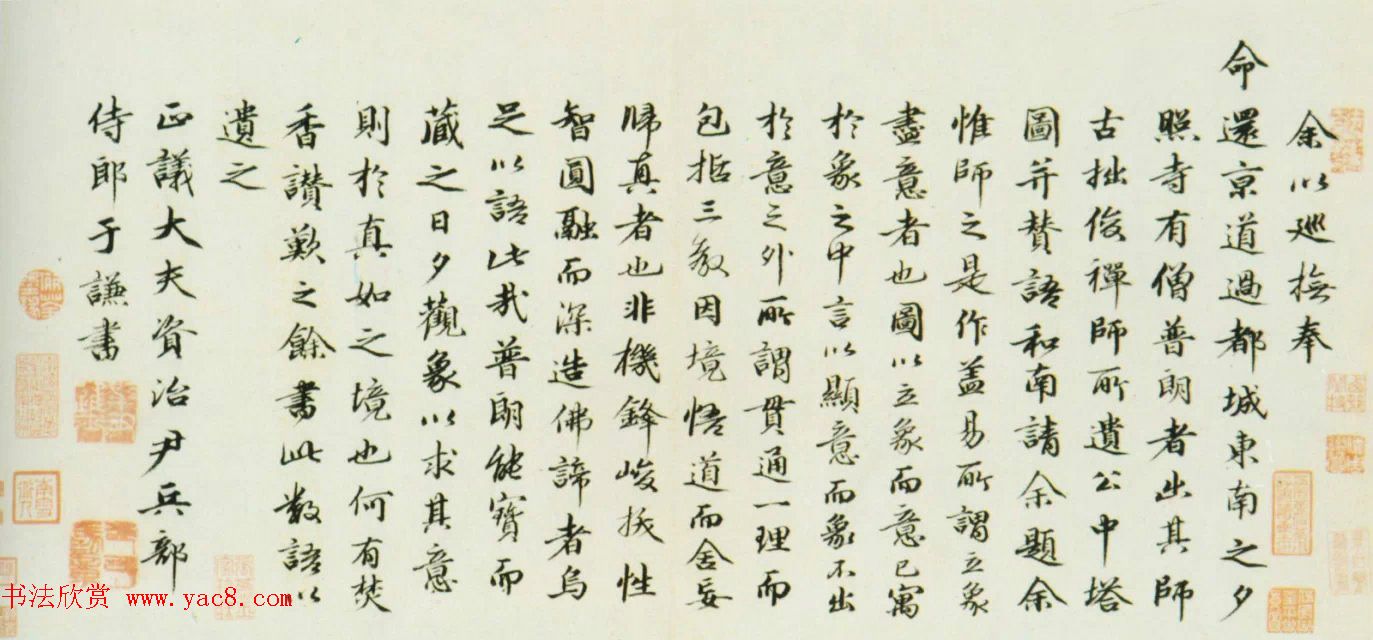 余以廵撫奉
命還京道過都城東南之夕
照寺有僧普朗者出其師
古拙俊禪師所遺公中塔
圖并贊語和南請余題余
惟師之是作盖易所謂立象
盡意者也圖以立象而意已寓
於象之中言以顯意而象不出
於意之外所謂貫通一理而
包括三教因境悟道而舍妄
歸真者也非機鋒峻拔性
智圓融而深造佛諦者烏
足以語此哉普朗能寶而
藏之日夕觀象以求其意
則於真如之境也何有焚
香讃歎之餘書此數語以
遺之
正議大夫資治尹兵部
侍郎于謙書
书法欣赏 www.yac8.com